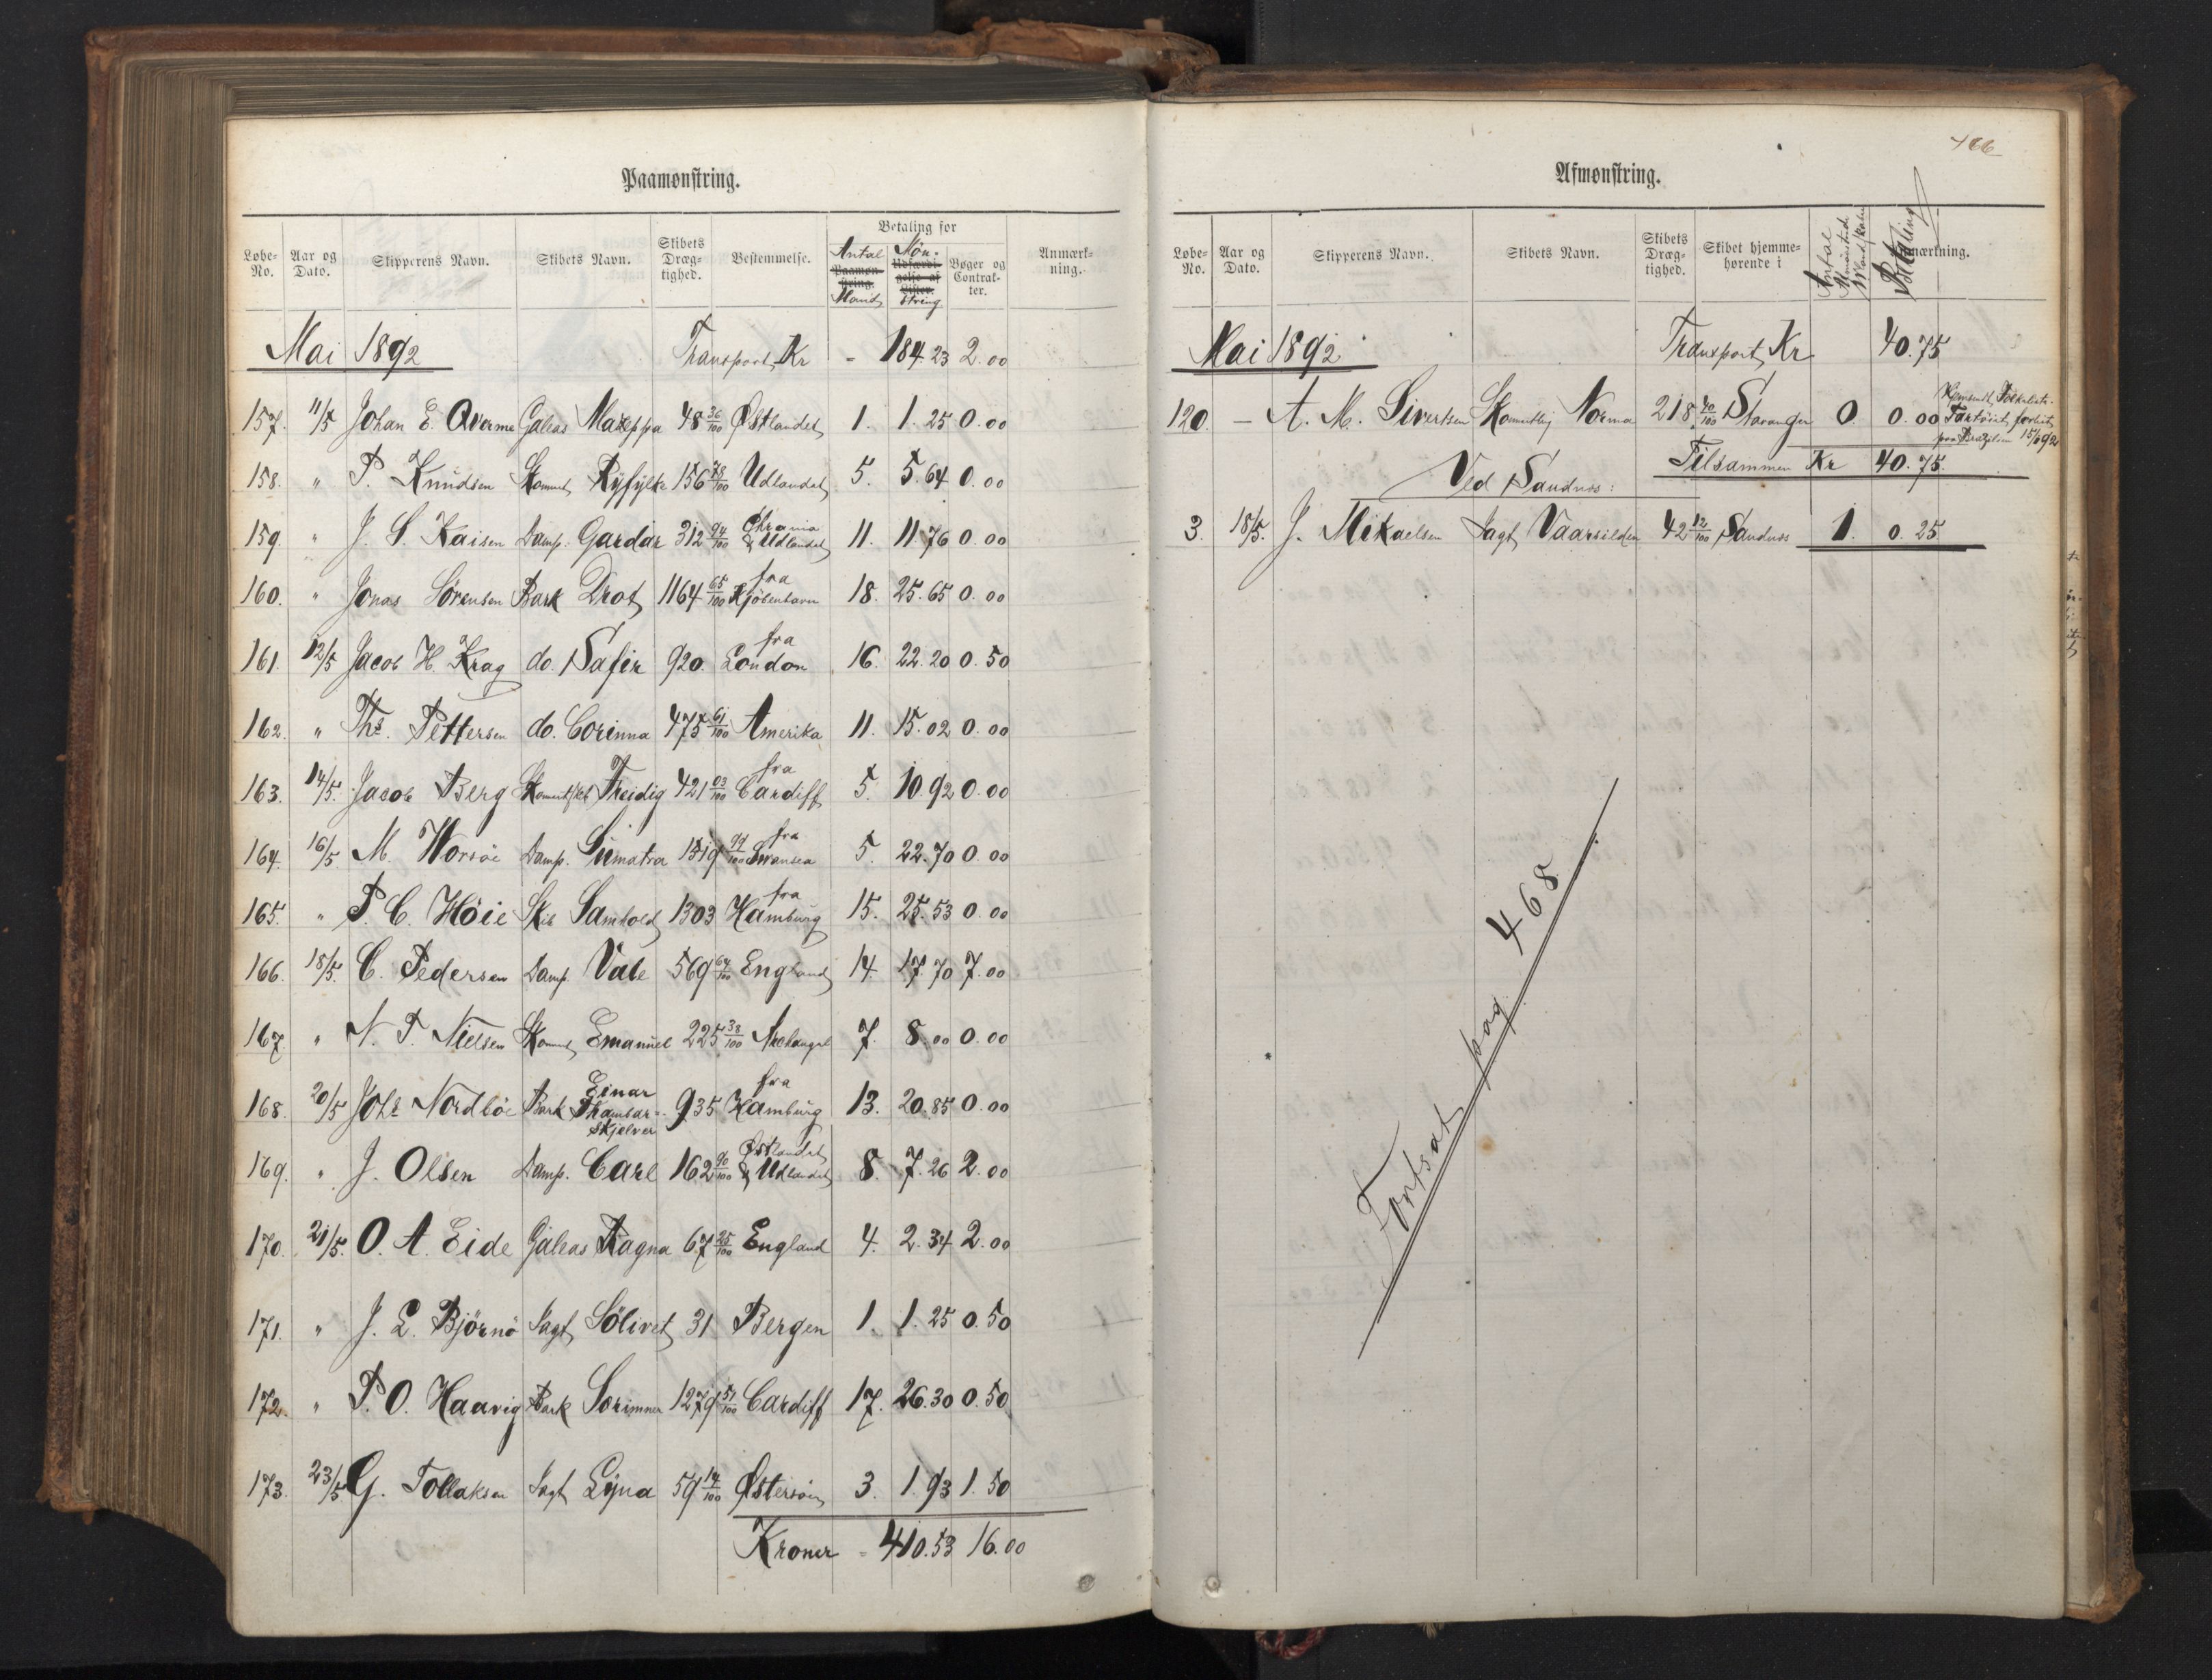 Paamønstring.
Løbe-No. Aar og Dato. Skipperens Navn. Skibets Navn. Skibets Dræg-tighed. Bestemmelse. Betaling for Anmærk-ning.
Antal Paamøn-string. Mand Møn-Udfærdi-gelse af Lister. string Bøger og Contrak-ter.
Mai 1892 Transport Kr - 184.23 2.00
157. 11/5 Johan E. Qvarme Galeas Mazeppa 48 36/100 Østlandet 1. 1.25 0.00
158. " P. Knudsen Skonnert Ryfylke 156 78/100 Udlandet 5. 5.64 0.00
159. " J. S. Kaisen Damp. Gardar 312 94/100 Chrania & Udlandet 11. 11.76 0.00
160. " Jonas Sørensen Bark Drot 1164 65/100 fra Kjöbenhavn 18. 25.65 0.00
161. 12/5 Jacob H. Krag do. Safir 920. fra London 16. 22.20 0.50
162. " Ths. Pettersen do. Corinna 475 61/100 Amerika 11. 15.02 0.00
163. 14/5. Jacob Berg Skonnertskib Freidig 421 03/100 fra Cardiff 5. 10.92 0.00
164. 16/5 M. Worsöe Damp. Sumatra 1519 99/100 fra Swansea 5. 22.70 0.00
165. " P. C. Höie Skib Samhold 1303 fra Hamburg 15. 25.53 0.00
166. 18/5. C. Pedersen Damp. Vale 569 64/100 England 14. 17.70 7.00
167. " N. P. Nielsen Skonnert Emanuel 225 38/100 Archangel 7. 8.00 0.00
168. 20/5 Johs Nordböe Bark Einar Thambar-skjelver 935 fra Hamburg 13. 20.85 0.00
169. " J. Olsen Damp. Carl 162 90/100 Østlandet & Udlandet 8. 7.26 2.00
170. 21/5. O. A. Eide Galeas Ragna 67 25/100 England 4. 2.34 2.00
171. " J. L. Björnö Jagt Sölivet 31 Bergen 1. 1.25 0.50
172. " P. O. Haavig Bark Sorimner 1279 51/100 Cardiff 17. 26.30 0.50
173. 23/5 G. Tollaksen Jagt Lyna 59 14/100 Østersöen 3. 1.93 1.50
Kroner - 410.53 16.00
466
Afmønstring.
Løbe-No. Aar og Dato. Skipperens Navn. Skibets Navn. Skibets Dræg-tighed. Skibet hjemme-hørende i Antal Afmönstrede Mandskaber Betaling Anmærkning.
Mai 1892 Transport Kr 40.75
120. - A. M. Sivertsen Norma 218 40/100 Stavanger 0. 0.00 Hjemsendt Folkeliste. Fartöiet forlist paa Brazilien 15/1 92
Tilsammen Kr 40.75.
Ved Sandnes:
3. 18/5. J. Mikaelsen Jagt Vaarsilden 42 12/100 Sandnes 1. 0.25
Fortsat pag. 468.